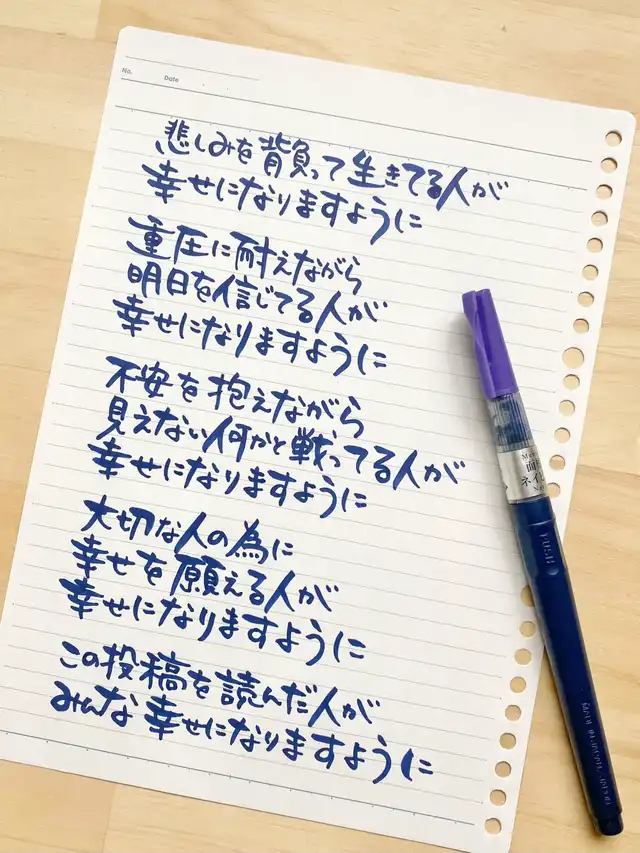 No.
Date
悲しみを背負って生きてる人が
幸せになりますように
重圧に耐えながら
明日を信じてる人が
幸せになりますように
不安を抱えながら
見えない何かと戦ってる人が
幸せになりますように
大切な人の為に
幸せを願える人が
幸せになりますように
この投稿を読んだ人が
みんな幸せになりますように
PUSH